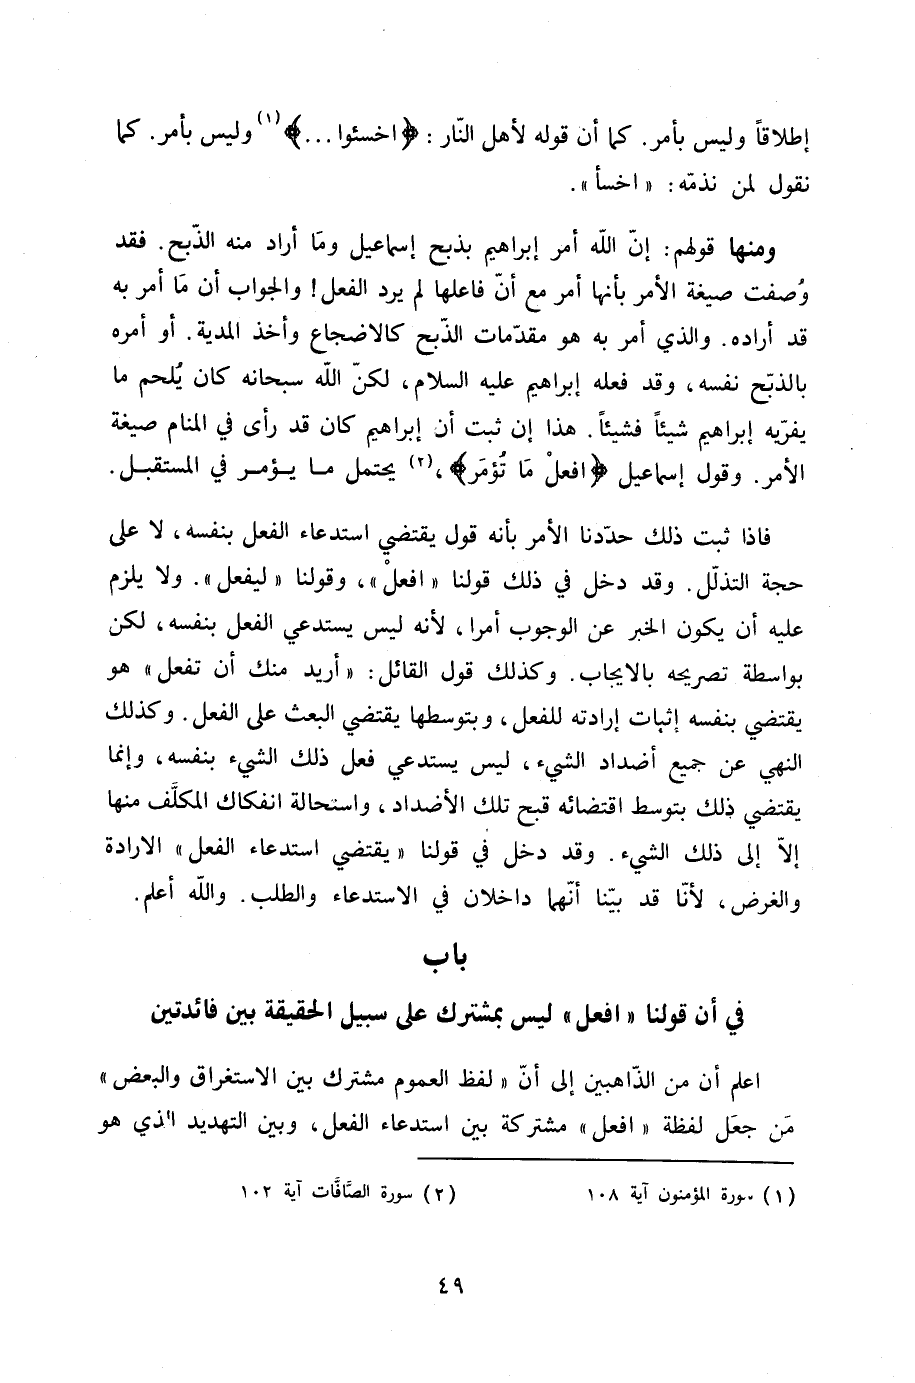 إطلاقاً وليس بأمر. كما أن قوله لأهل النّار : ﴿اخسئوا ...﴾(١) وليس بأمر. كما
نقول لمن نذمّه: « اخسأ ».
ومنها قولهم: إنّ اللّه أمر إبراهيم بذبح إسماعيل ومَا أراد منه الذّبح. فقد
وُصفت صيغة الأمر بأنها أمر مع أنّ فاعلها لم يرد الفعل! والجواب أن مَا أمر به
قد أراده. والذي أمر به هو مقدّمات الذّبح كالاضجاع وأخذ المدية. أو أمره
بالذبّح نفسه، وقد فعله إبراهيم عليه السلام، لكنّ اللّه سبحانه كان يُلحم ما
يفرّيه إبراهيم شيئاً فشيئاً. هذا إن ثبت أن إبراهيم كان قد رأى في المنام صيغة
الأمر. وقول إسماعيل ﴿افعلْ مَا تُؤمَر﴾،(٢) يحتمل ما يؤمر في المستقبل.
فاذا ثبت ذلك حدّدنا الأمر بأنه قول يقتضي استدعاء الفعل بنفسه، لا على
حجة التذلّل. وقد دخل في ذلك قولنا « افعلْ »، وقولنا « ليفعل ». ولا يلزم
عليه أن يكون الخبر عن الوجوب أمرا، لأنه ليس يستدعي الفعل بنفسه، لكن
بواسطة تصريحه بالايجاب. وكذلك قول القائل: « أريد منك أن تفعل » هو
يقتضي بنفسه إثبات إرادته للفعل، وبتوسطها يقتضي البعث على الفعل. وكذلك
النهي عن جميع أضداد الشيء، ليس يستدعي فعل ذلك الشيء بنفسه، وإنما
يقتضي ذلك بتوسط اقتضائه قبح تلك الأضداد، واستحالة انفكاك المكلَّف منها
إلاّ إلى ذلك الشيء. وقد دخل في قولنا « يقتضي استدعاء الفعل » الارادة
والغرض، لأنّا قد بيّنا أنّهما داخلان في الاستدعاء والطلب. واللّه أعلم.
باب
في أن قولنا « افعل » ليس بمشترك على سبيل الحقيقة بين فائدتين
اعلم أن من الذّاهبين إلى أنّ « لفظ العموم مشترك بين الاستغراق والبعض »
مَن جعَل لفظة « افعل » مشتركة بين استدعاء الفعل، وبين التهديد الذي هو
(١) سورة المؤمنون آية ١٠٨ (٢) سورة الصَّافَّات آية ١٠٢
٤٩